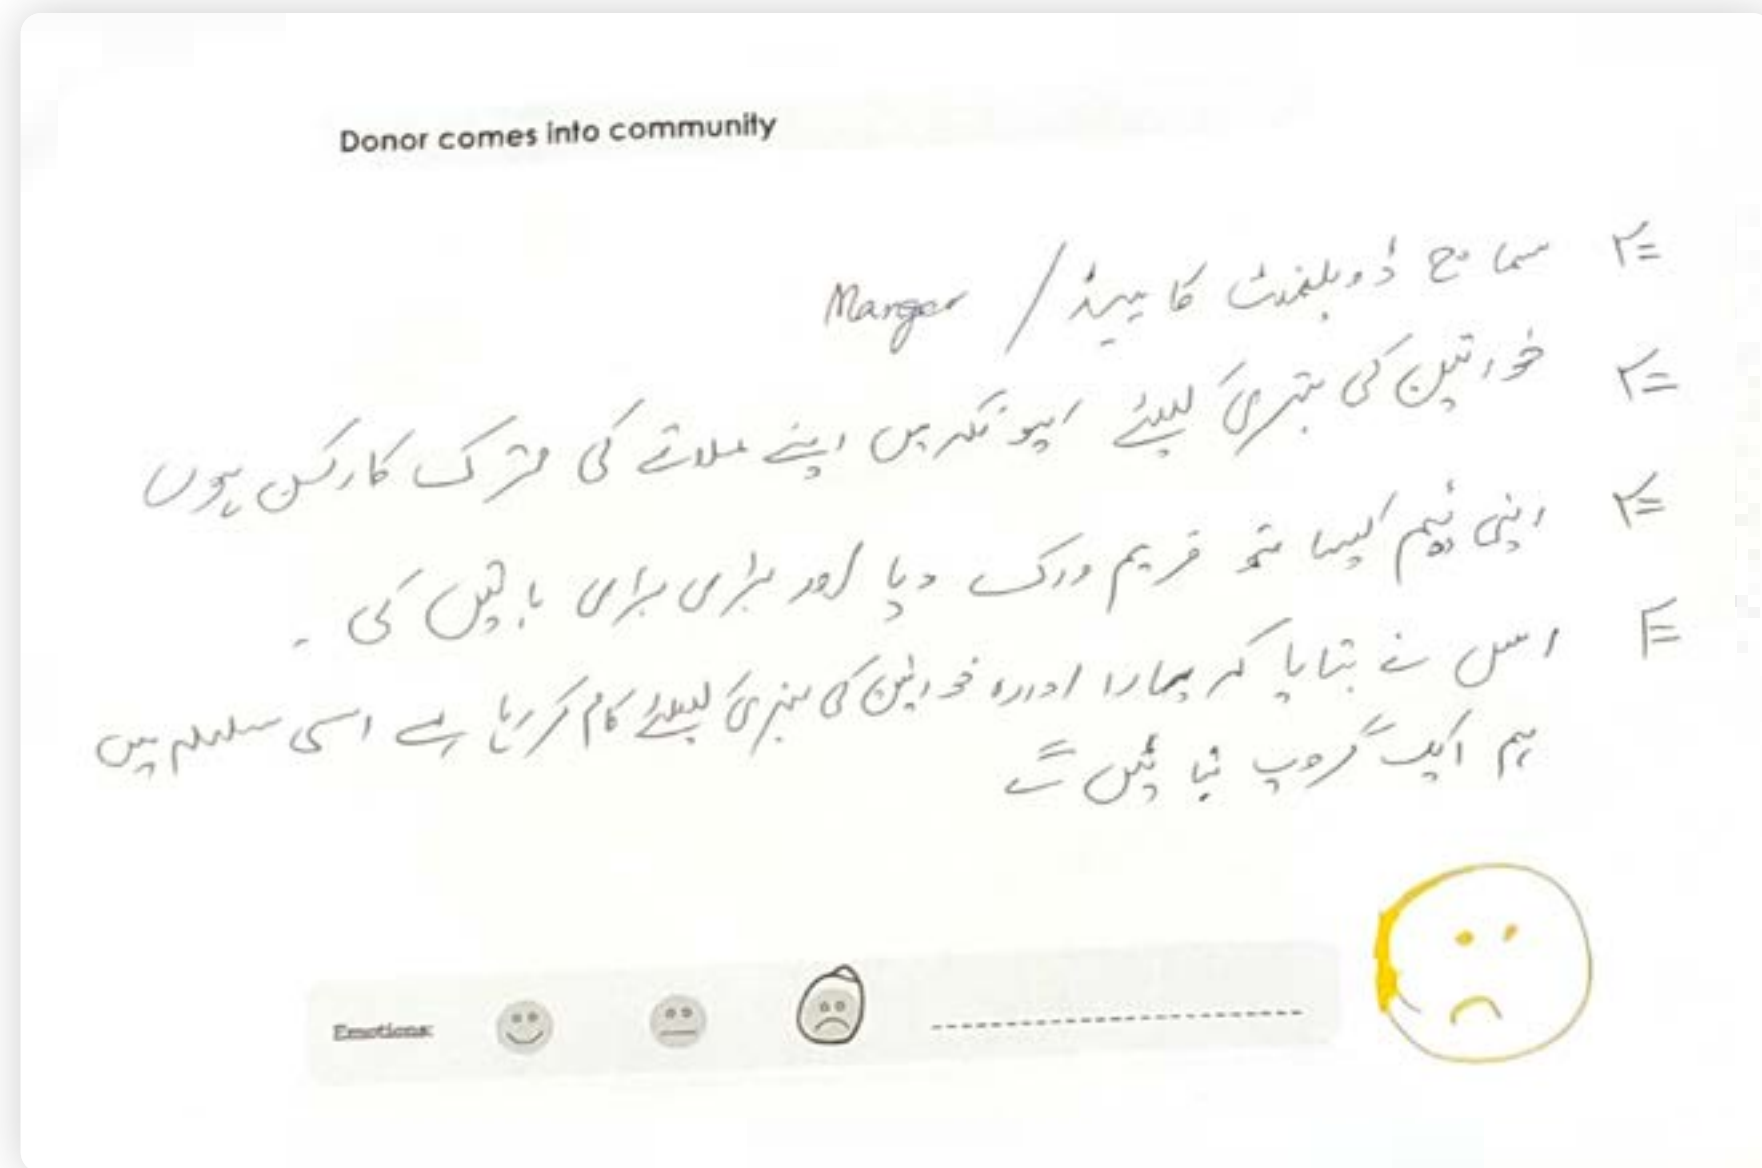 Donor comes into community
=٢ سماج ڈویلپمنٹ کا ہیڈ / Manger
=٢ خواتین کی بہتری کیلئے کیونکہ میں اپنے علاقے کی متحرک کارکن ہوں
=٢ اپنی ٹیم کیساتھ فریم ورک دیا اور بڑی بڑی باتیں کی ۔
اس نے بتایا کہ ہمارا ادارہ خواتین کی بہتری کیلئے کام کر رہا ہے اسی سلسلہ میں
ہم ایک گروپ بنائیں گے
Emotions: